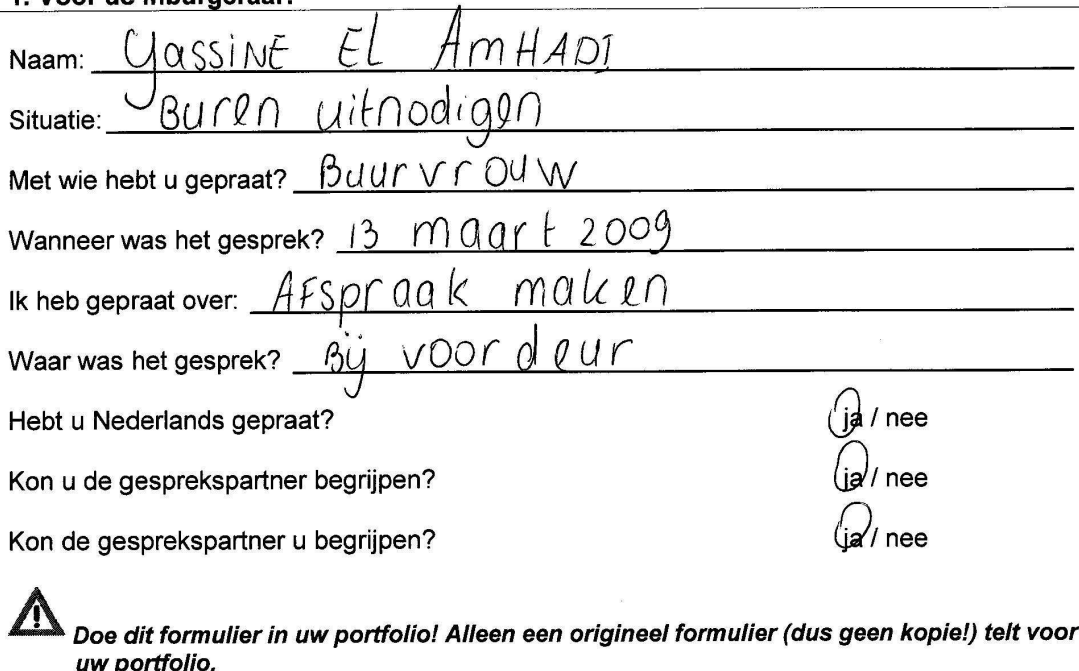 1. Voor de inburgeraar:
Naam: Yassine El AmHADI
Situatie: Buren uitnodigen
Met wie hebt u gepraat? Buurvrouw
Wanneer was het gesprek? 13 maart 2009
Ik heb gepraat over: AFspraak maken
Waar was het gesprek? Bij voordeur
Hebt u Nederlands gepraat? ja / nee
Kon u de gesprekspartner begrijpen? ja / nee
Kon de gesprekspartner u begrijpen? ja / nee
Doe dit formulier in uw portfolio! Alleen een origineel formulier (dus geen kopie!) telt voor
uw portfolio.